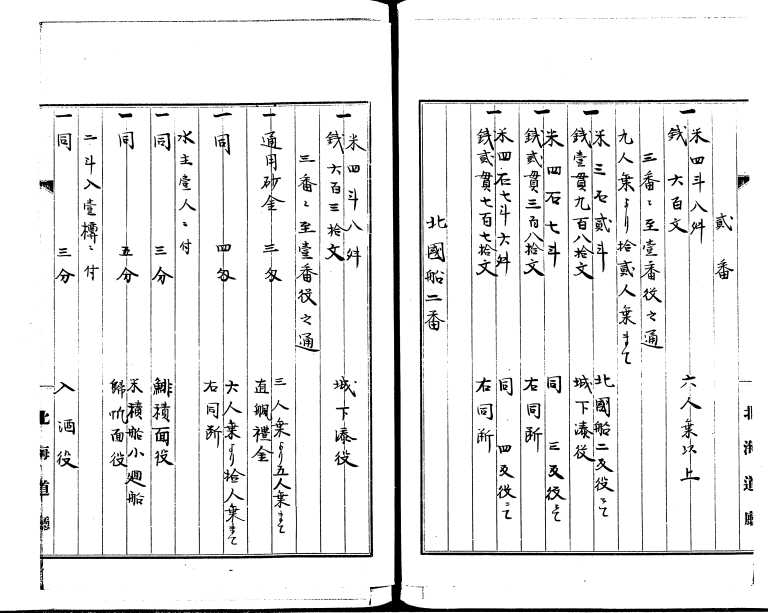 貳番
一 米四斗八舛
錢六百文 六人乗以上
三番ゟ至壹番役之通
九人乗ゟ拾貳人乗まて
一 米三石貳斗 北國船二反役ニて
錢壹貫九百八拾文 城下湊役
一 米四石七斗 同 三反役ニて
錢貳貫三百八拾文 右同断
一 米四石七斗六舛 同 四反役ニて
錢貳貫七百七拾文 右同断
北國船二番
一 米四斗八舛
錢六百三拾文 城下湊役
三番ゟ至壹番役之通
一 通用砂金 三匁 三人乗ゟ五人乗まて
直綱禮金
一 同 四匁 六人乗ゟ拾人乗まて
右同断
水主壹人ニ付
一 同 三分 鯡積面役
一 同 五分 米積船小廻船
歸帆面役
二斗入壹樽ニ付
一 同 三分 入酒役
北海道廳
北海道廳